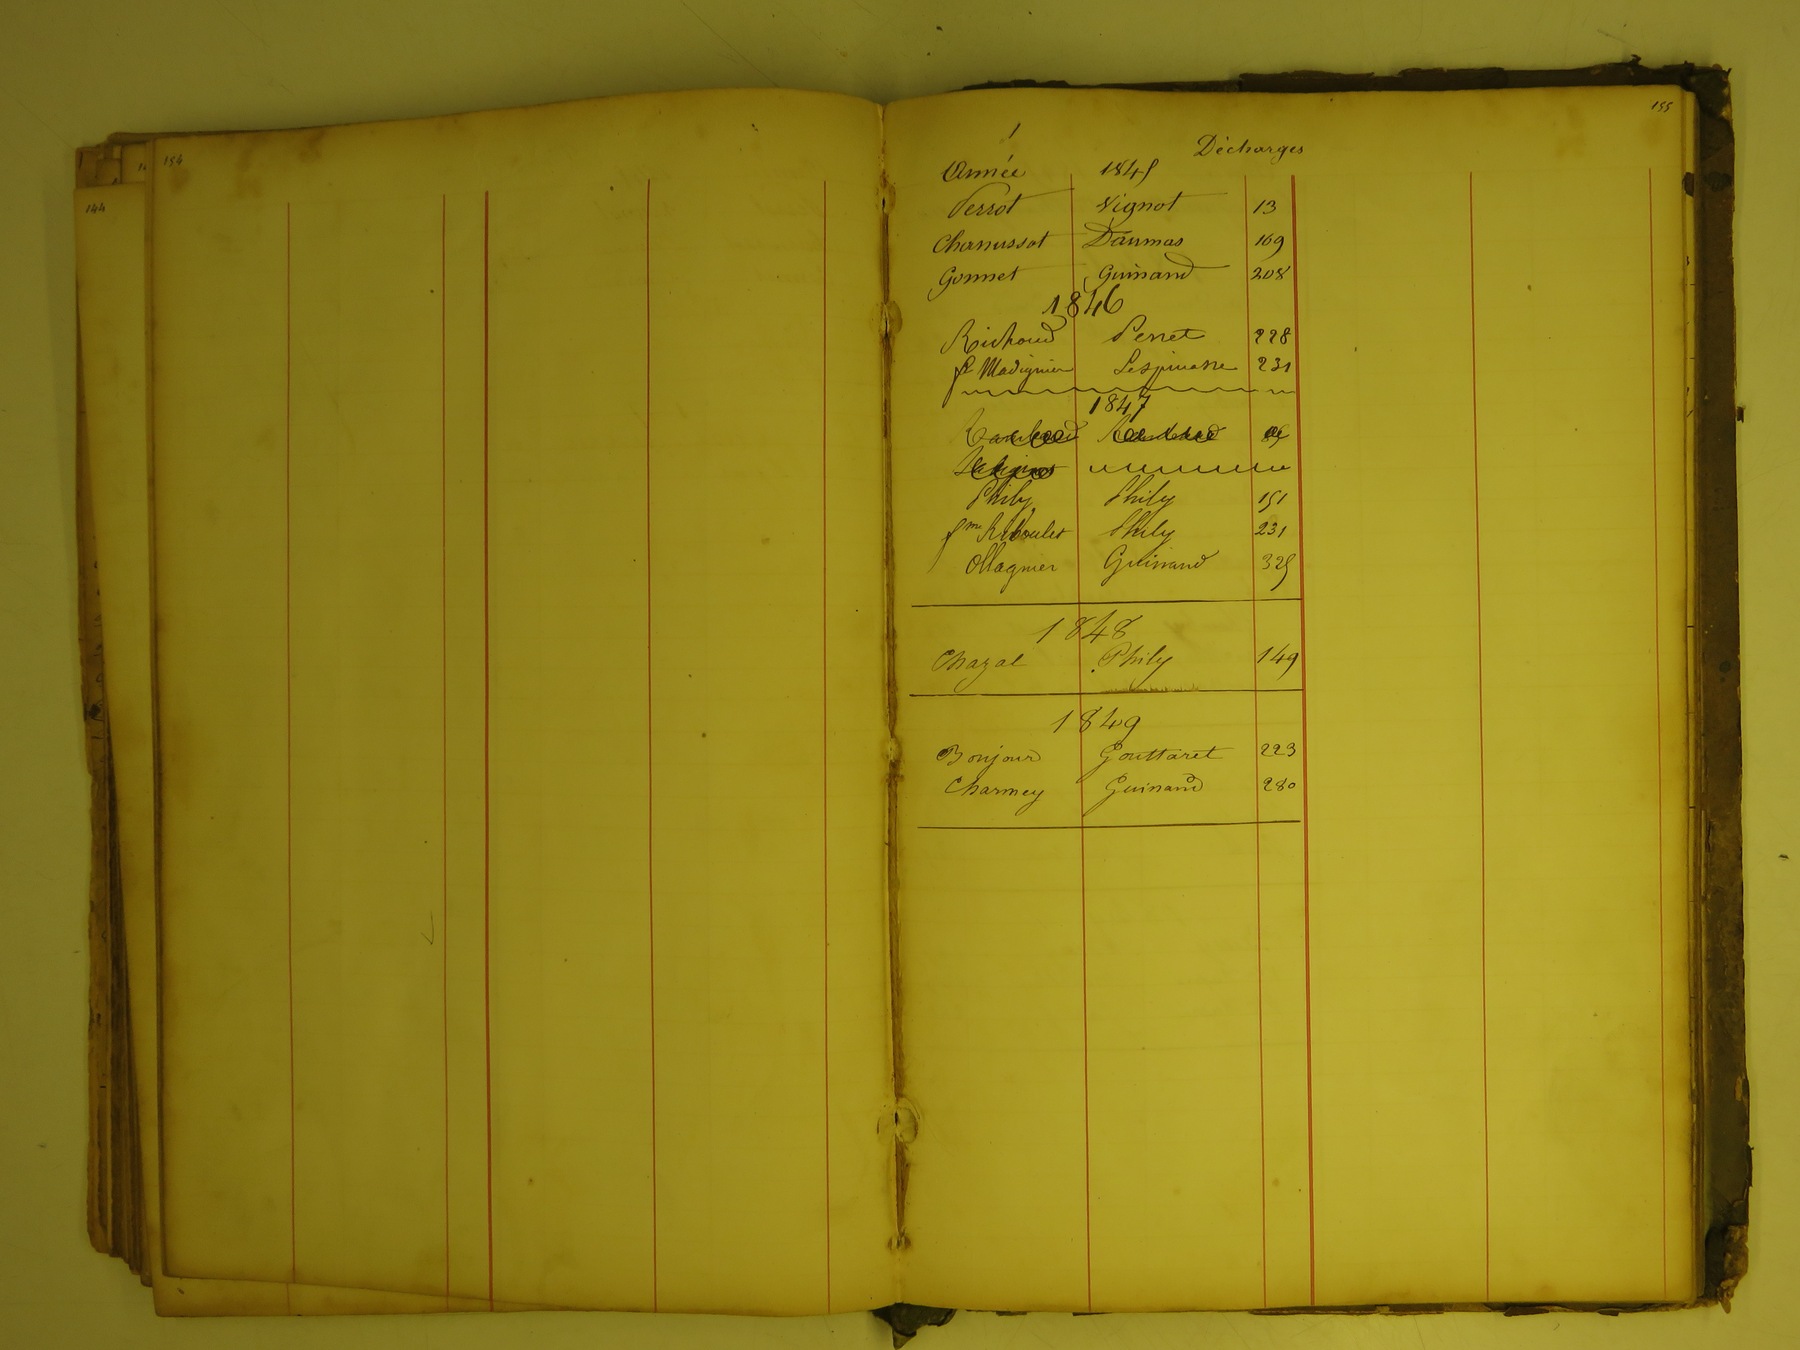 154
144
155
Décharges
Année 1845
Perrot Vignot 13
Chanussot Daumas 169
Gonnet Guinand 208
1846
Richoud Perret 228
fe Madignier Lespinasse 231
1847
Phily Phily 151
fme Riboulet Phily 231
Ollagnier Guinand 325
1848
Chazal Phily 149
1849
Bonjour Gouttaret 223
Charmey Guinand 280